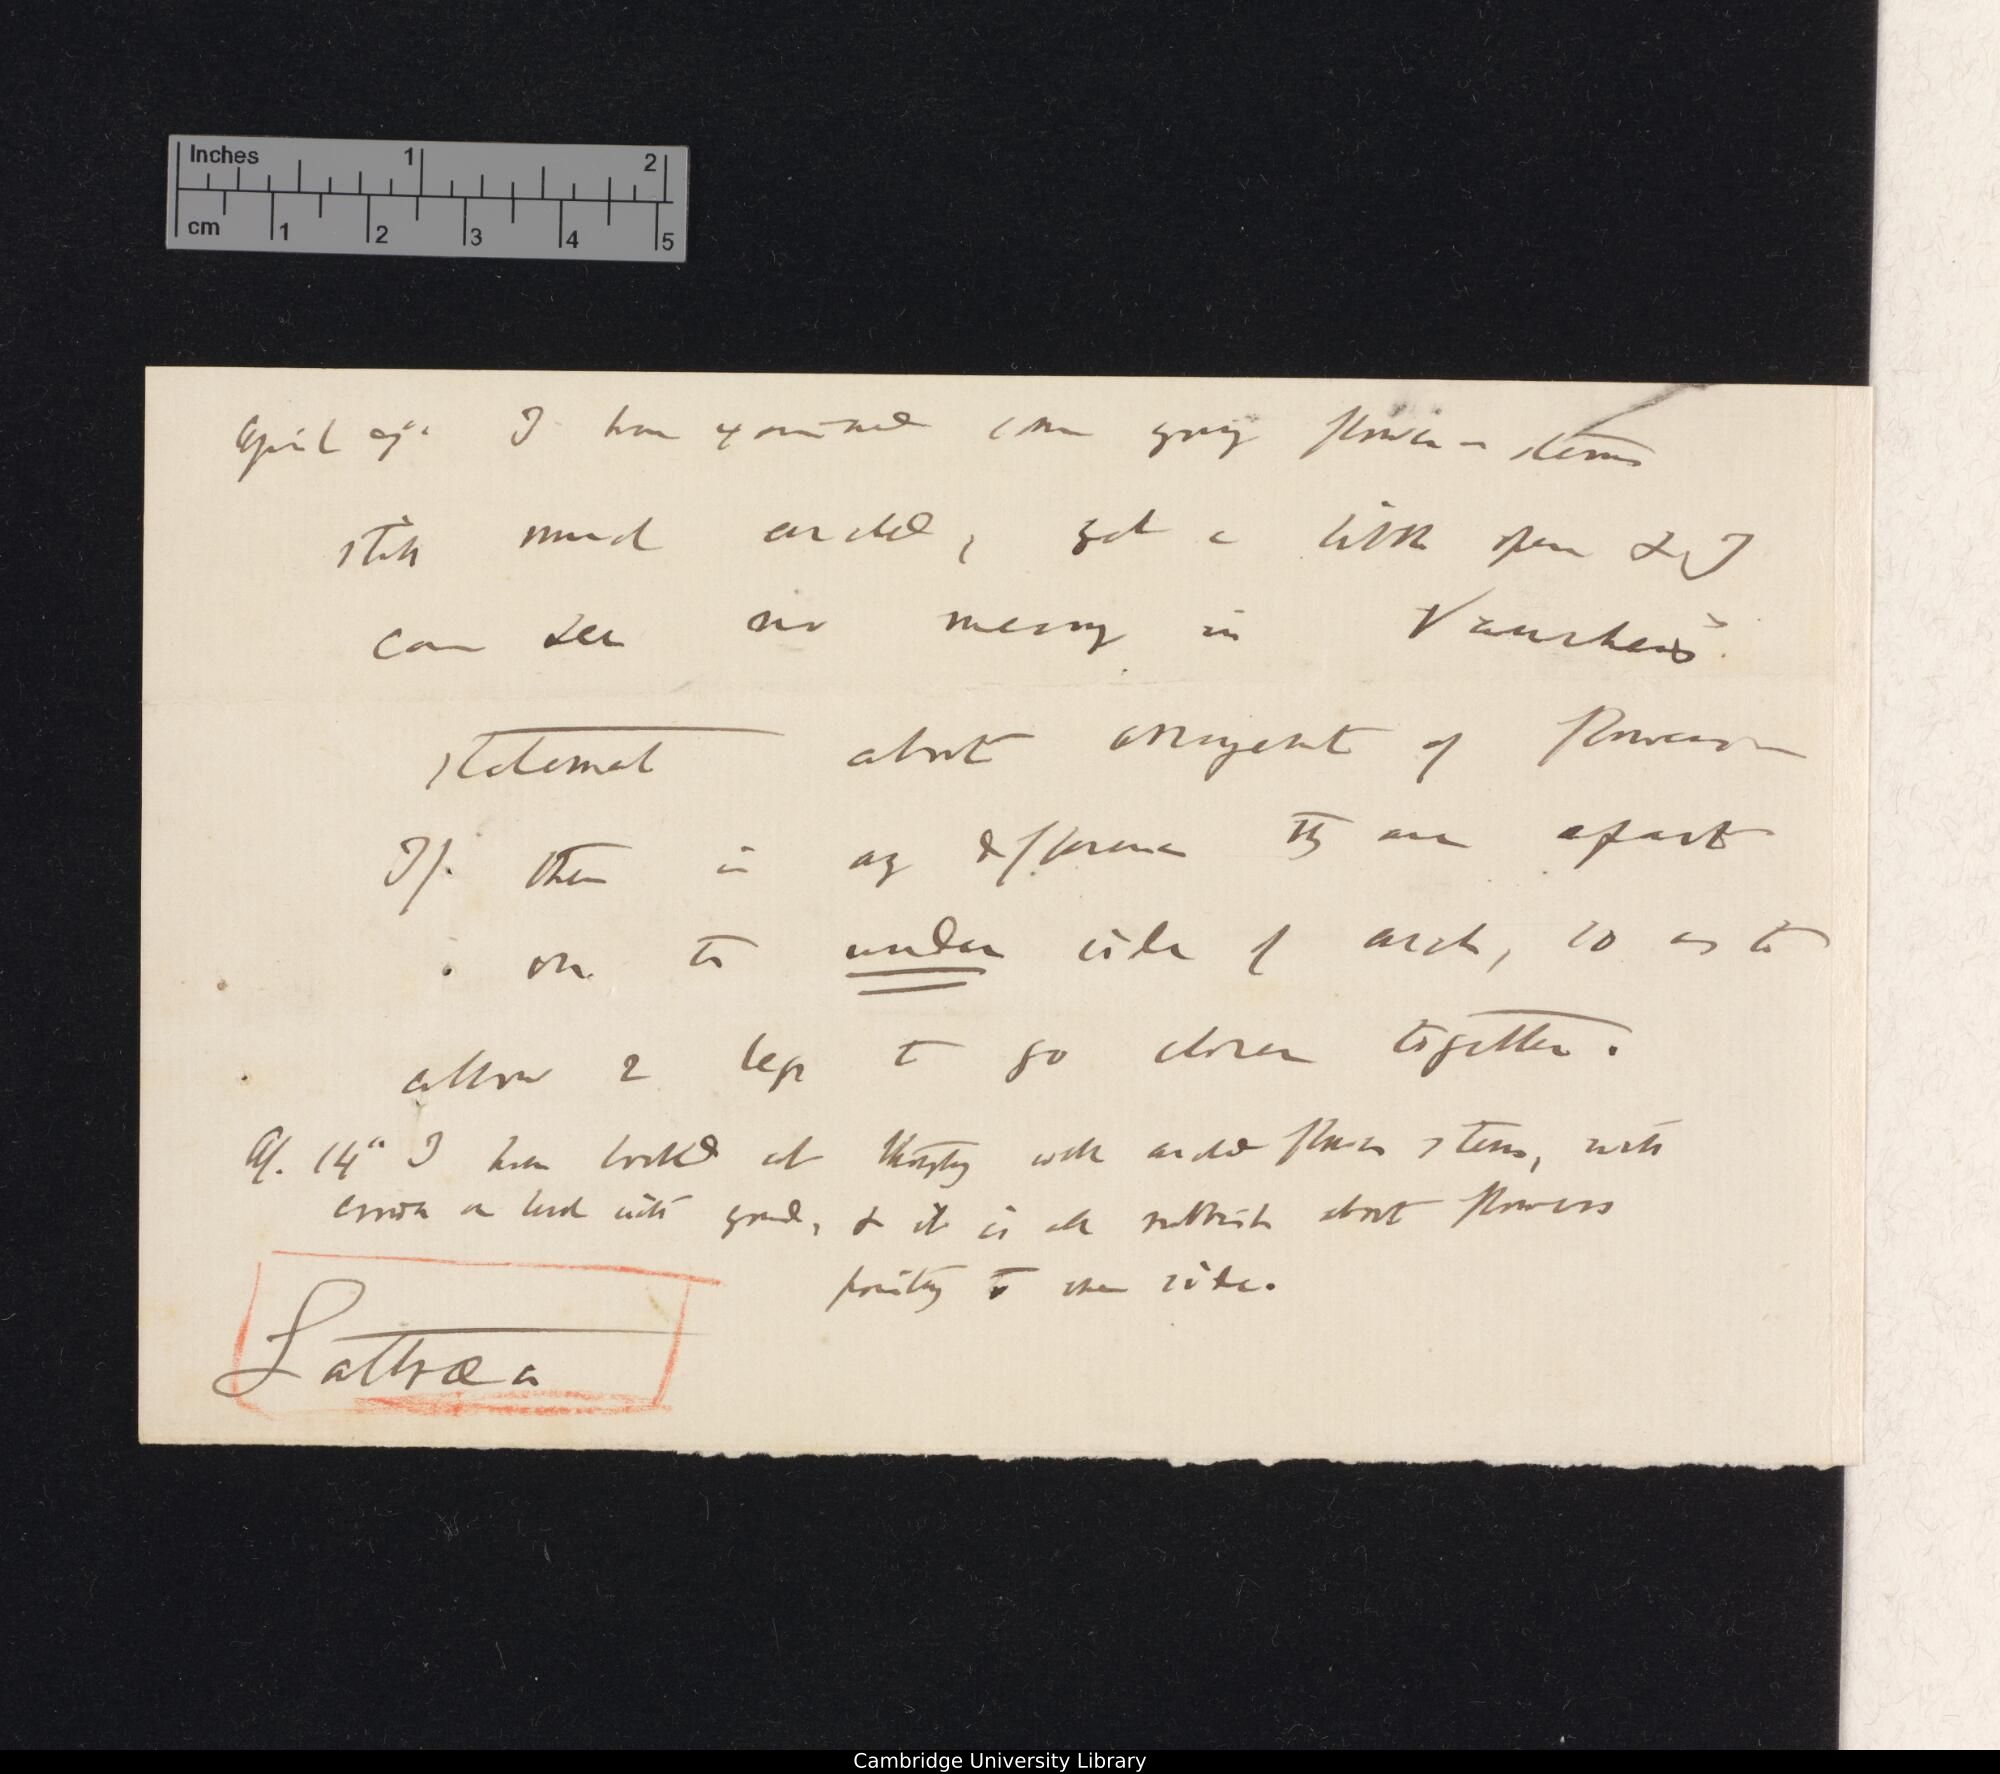 Inches 1 2
cm 1 2 3 4 5
April 9th I have examined some young flower-stems
still much arched, yet a little open & I
can see no meaning in Vaucher's
statement about arrangement of flowers
If there is any difference they are apart
on to under side of arch, so as to
allow 2 legs to go closer together.
Ap. 14th I have looked at with arched flower stems, with
crown on level with ground, & it is all rubbish about flowers
pointing to one side.
Lathræa
Cambridge University Library